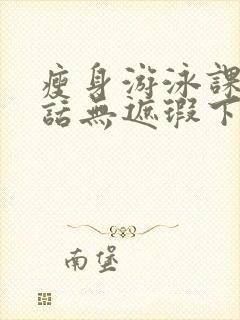 瘦身游泳課
話無遮瑕下
南堡